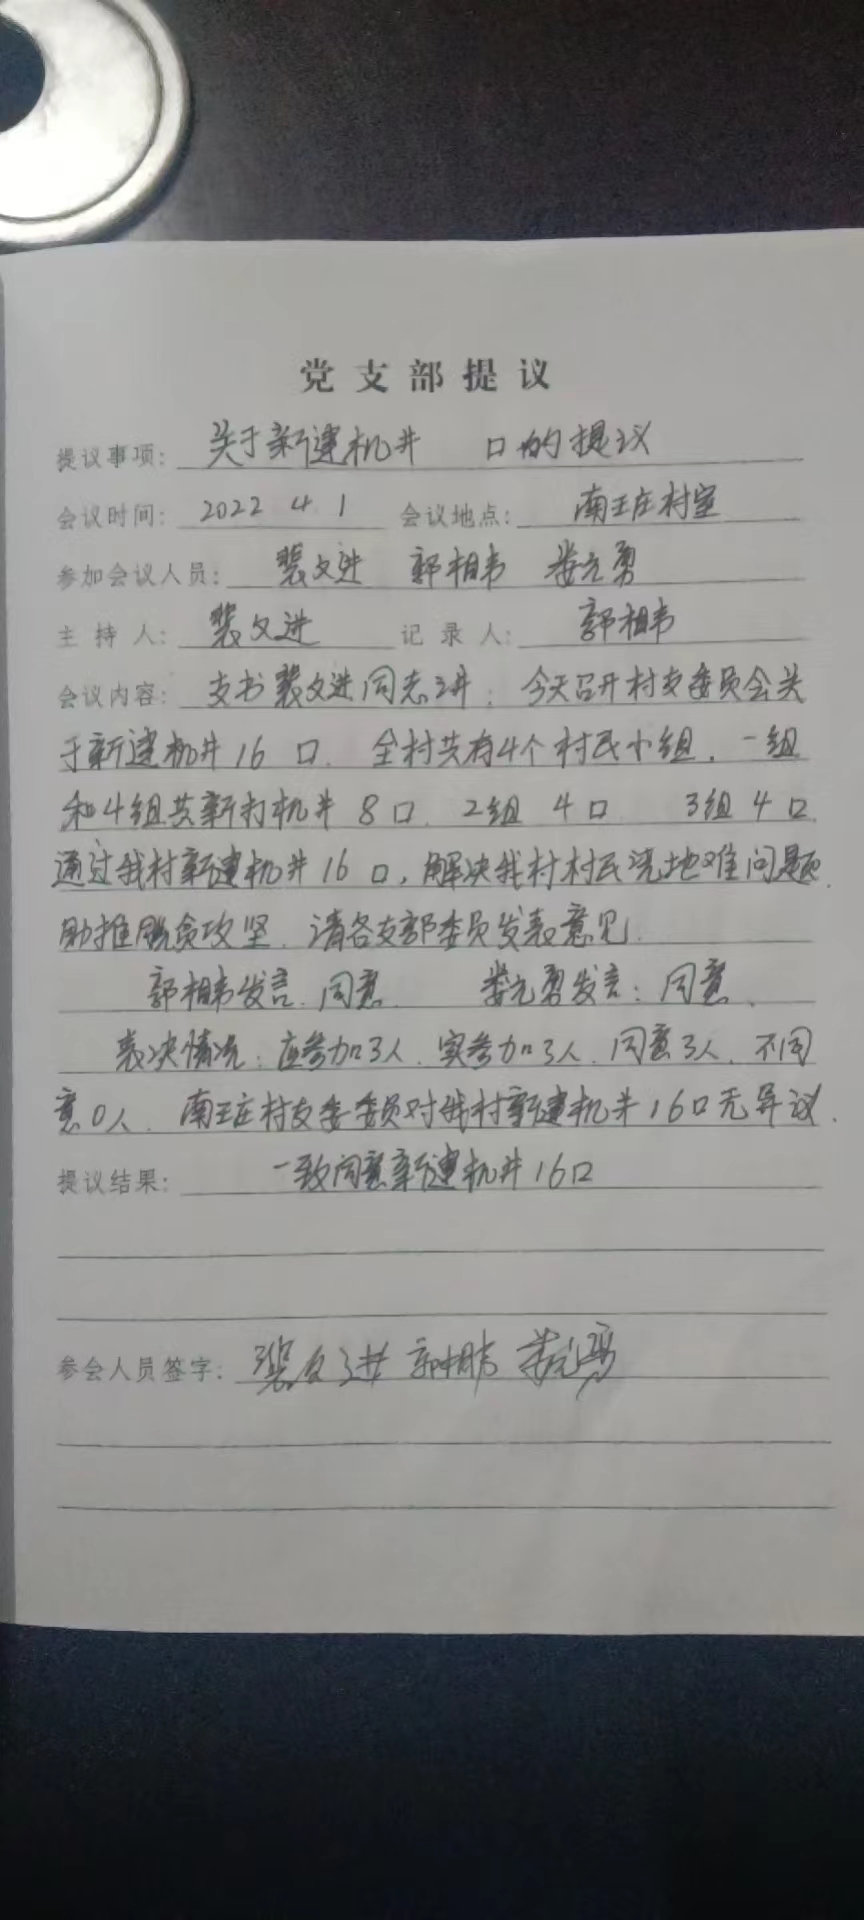 党支部提议
提议事项: 关于新建机井 口的提议
会议时间: 2022 4 1 会议地点: 南王庄村室
参加会议人员: 裴文进 郭相韦 娄元勇
主持人: 裴文进 记录人: 郭相韦
会议内容: 支书裴文进同志讲: 今天召开村支委员会关
于新建机井16 口. 全村共有4个村民小组. 一组
和4组共新打机井 8口. 2组 4口 3组4口.
通过我村新建机井16口, 解决我村村民浇地难问题.
助推脱贫攻坚. 请各支部委员发表意见.
郭相韦发言. 同意. 娄元勇发言: 同意.
表决情况: 应参加3人. 实参加3人. 同意3人. 不同
意0人. 南王庄村支委委员对我村新建机井16口无异议.
提议结果: 一致同意新建机井16口
参会人员签字: 裴文进 郭相韦 娄元勇